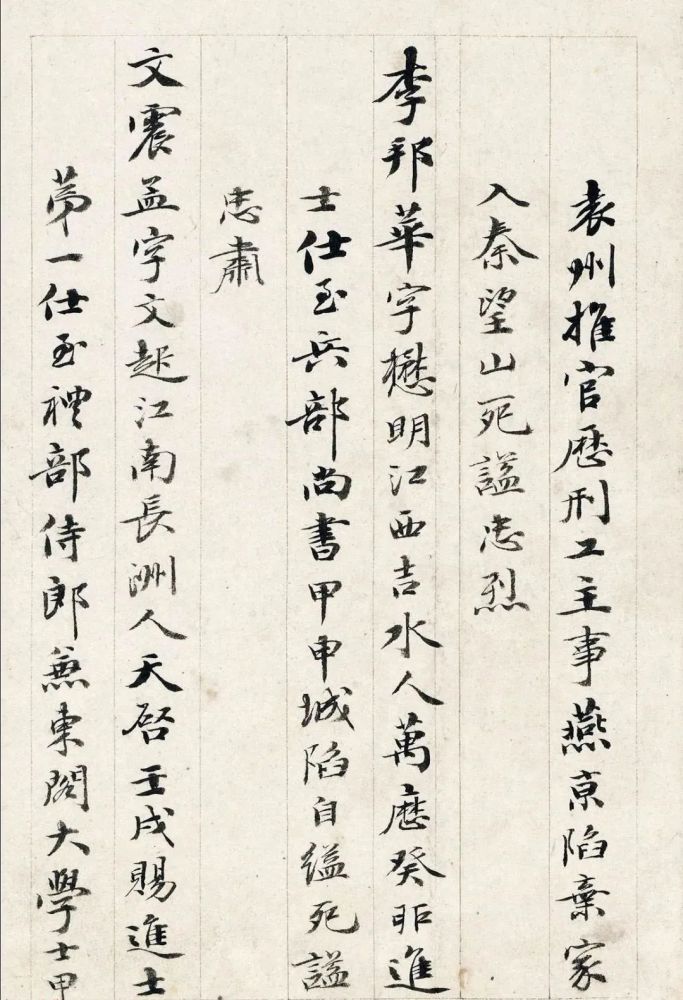 袁州推官歷刑工主事燕京陷棄家
入秦望山死謚忠烈
李邦華字懋明江西吉水人萬歷癸卯進
士仕至兵部尚書甲申城陷自縊死謚
忠肅
文震孟字文起江南長洲人天啓壬戌賜進士
第一仕至禮部侍郎兼東閣大學士甲